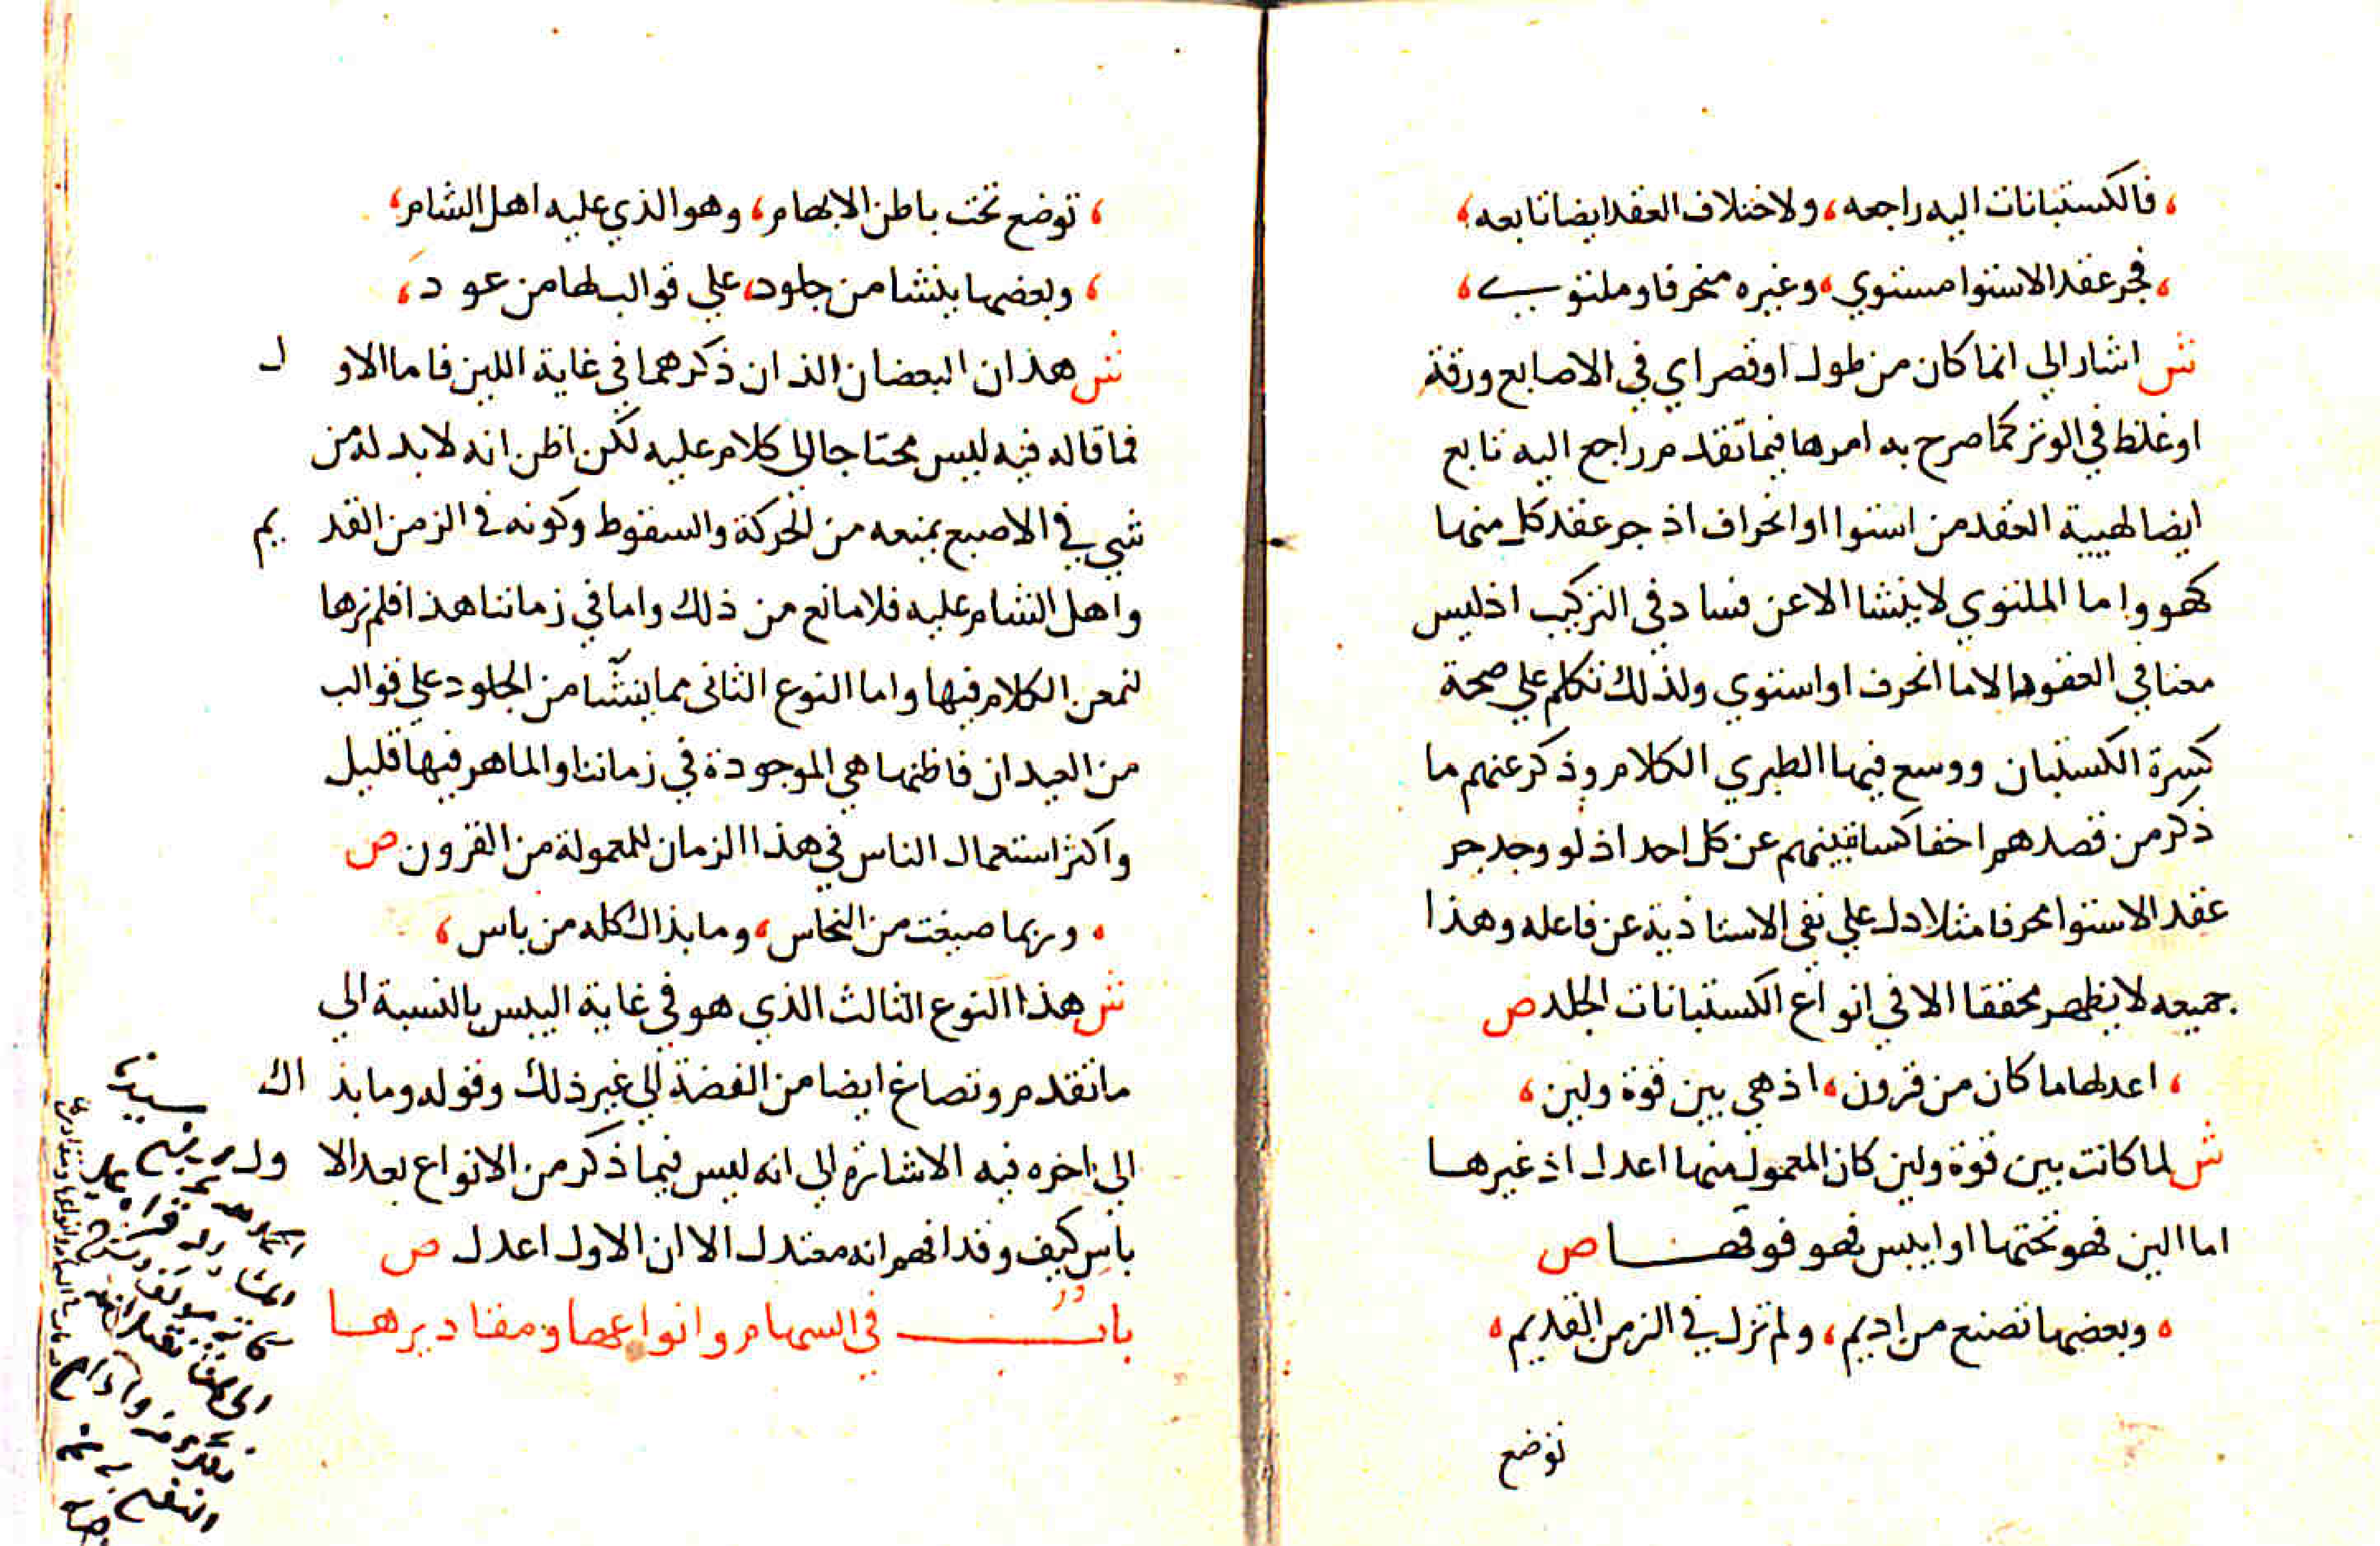 ، فالكستبانات اليه راجعه ، ولاختلاف العقد ايضا تابعه ،
، فجر عقد الاستوا مستوي ، وغيره منحرفا وملتوي ،
ش اشار الي انما كان من طول اوقصر اي في الاصابع ورقة
اوغلظ في الوتر كما صرح به امرها فيما تقدم راجع اليه تابع
ايضا لهيية العقد من استوا او انحراف اذ جر عقد كل منها
كهو واما الملتوي لا ينشا الا عن فساد في التركيب اذ ليس
معنا في العقود الا ما انحرف او استوي ولذلك تكلم علي صحة
كسرة الكستبان ووسع فيها الطبري الكلام وذكر عنهم ما
ذكر من قصدهم اخفا كساتبينهم عن كل احد اذ لو وجد جر
عقد الاستوا محرفا مثلا دل علي نفي الاستاذية عن فاعله وهذا
جميعه لا يظهر محققا الا في انواع الكستبانات الجلد ص
، اعدلها ما كان من قرون ، اذ هي بين قوة ولين ،
ش لما كانت بين قوة ولين كان المعمول منها اعدل اذ غيرها
اما الين فهو تحتها او ايبس فهو فوقها ص
، وبعضها تصنع من اديم ، ولم تزل في الزمن القديم ،
توضع
، توضع تحت باطن الابهام ، وهو الذي عليه اهل الشام ،
، وبعضها ينشا من جلود ، علي قوالب لها من عود ،
ش هذان البعضان الذان ذكرهما في غاية اللين فاما الاول
فما قاله فيه ليس محتاجا الي كلام عليه لكن اظن انه لا بد له من
شي في الاصبع يمنعه من الحركة والسقوط وكونه في الزمن القديم
واهل الشام عليه فلا مانع من ذلك واما في زماننا هذا فلم نرها
لنمعن الكلام فيها واما النوع الثاني مما ينشا من الجلود علي قوالب
من العيدان فاظنها هي الموجودة في زماننا والماهر فيها قليل
واكثر استعمال الناس في هذا الزمان للمعمولة من القرون ص
، وربما صيغت من النحاس ، وما بذاك كله من باس ،
ش هذا النوع الثالث الذي هو في غاية اليبس بالنسبة الي
ما تقدم وتصاغ ايضا من الفضة الي غير ذلك وقوله وما بذاك
الي اخره فيه الاشارة الي انه ليس فيما ذكر من الانواع بعد الاول
باس كيف وقد افهم انه معتدل الا ان الاول اعدل ص
باب في السهام وانواعها ومقاديرها